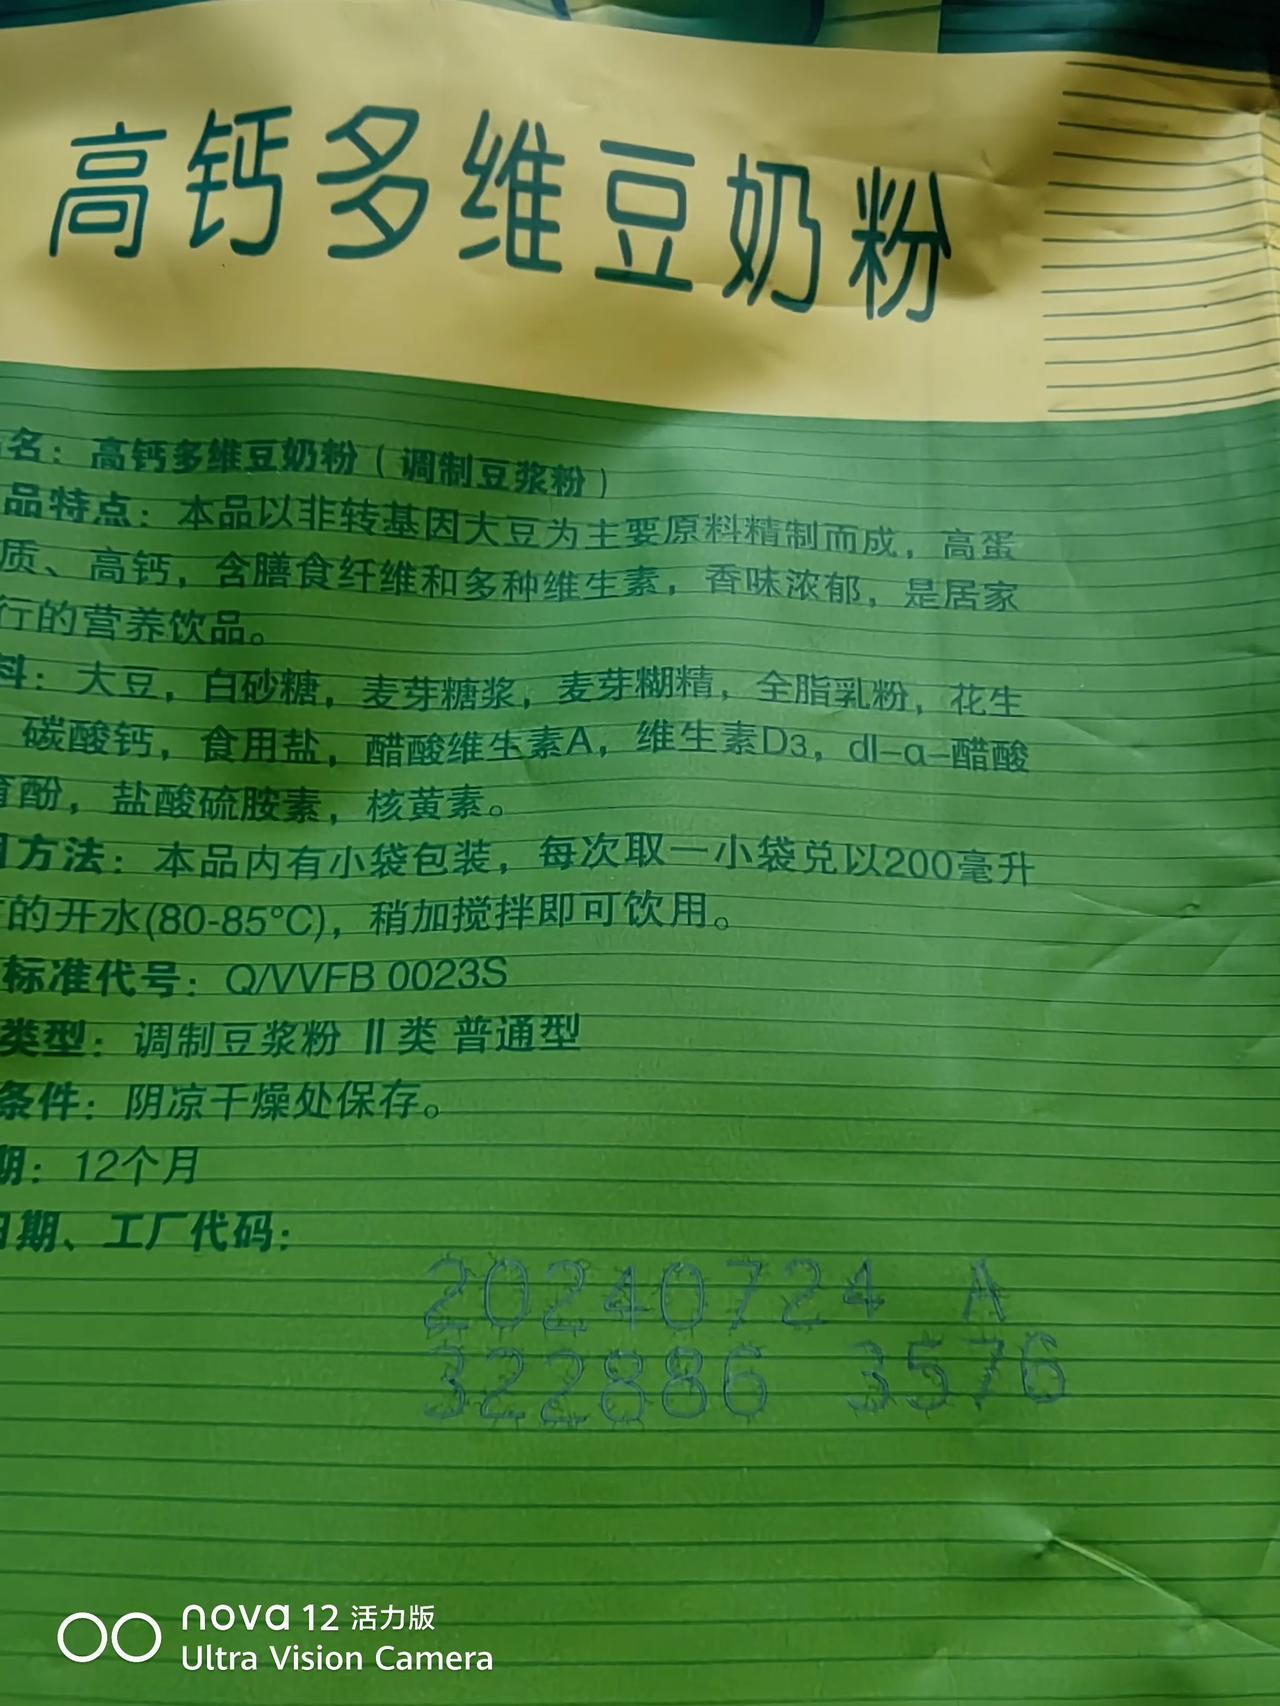 高钙多维豆奶粉
名：高钙多维豆奶粉（调制豆浆粉）
品特点：本品以非转基因大豆为主要原料精制而成，高蛋
质、高钙，含膳食纤维和多种维生素，香味浓郁，是居家
行的营养饮品。
料：大豆，白砂糖，麦芽糖浆，麦芽糊精，全脂乳粉，花生
碳酸钙，食用盐，醋酸维生素A，维生素D3，dl-α-醋酸
育酚，盐酸硫胺素，核黄素。
方法：本品内有小袋包装，每次取一小袋兑以200毫升
的开水(80-85°C)，稍加搅拌即可饮用。
标准代号：Q/VVFB 0023S
类型：调制豆浆粉 Ⅱ类 普通型
条件：阴凉干燥处保存。
期：12个月
日期、工厂代码：
20240724 A
322886 3576
nova 12 活力版
Ultra Vision Camera